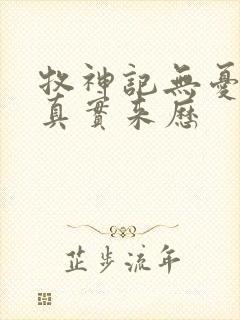 牧神記無憂
真實來歷
芷步流年